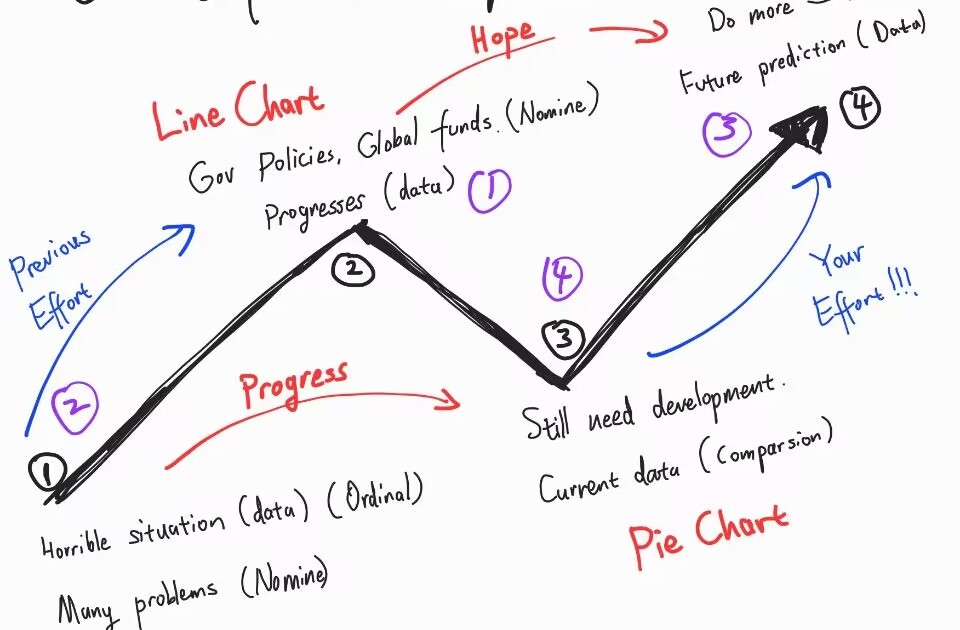 Hope
Do more
Future prediction (Data)
Line Chart
Gov Policies, Global funds. (Nomine)
Progresses (data)
①
③
④
Previous
Effort
②
④
③
Your
Effort!!!
②
①
Progress
Still need development.
Current data (Comparsion)
Horrible situation (data) (Ordinal)
Many problems (Nomine)
Pie Chart